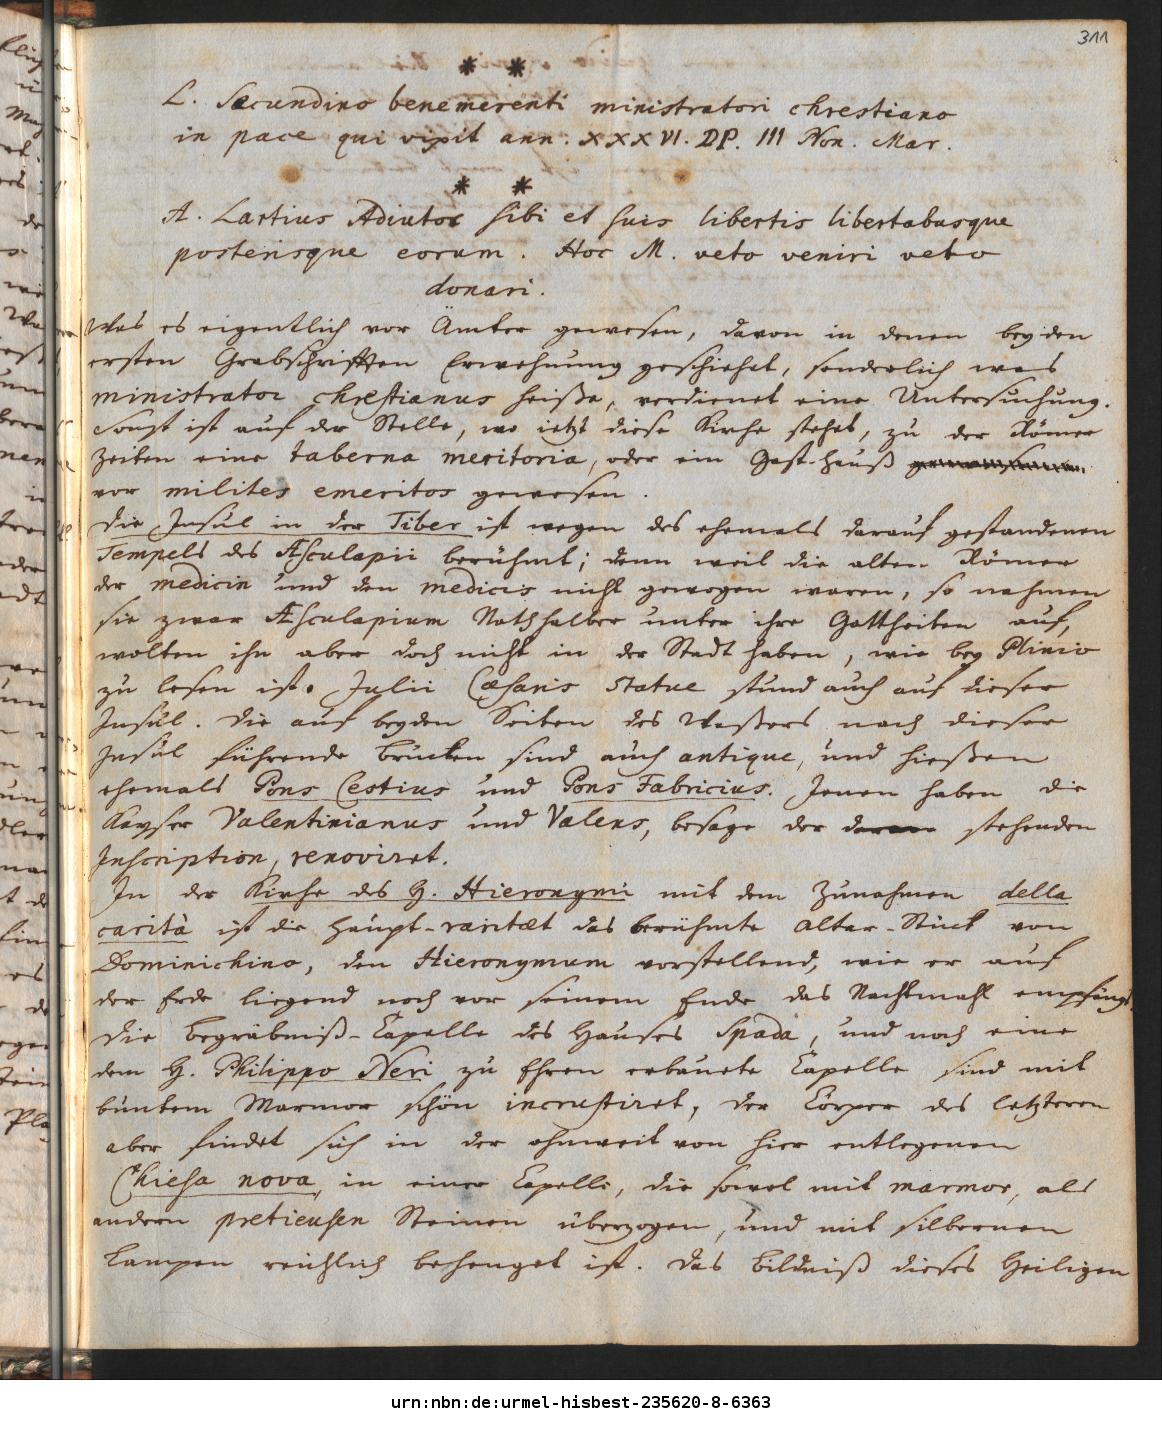 311
* *
L. Secundino benemerenti ministratori chrestiano
in pace qui vixit ann. XXXVI. DP. III Non. Mar.
* *
A. Lartius Adiutor sibi et suis libertis libertabusque
posterisque eorum. Hoc M. veto veniri veto
donari.
Was es eigentlich vor Ämter gewesen, davon in denen beyden
ersten Grabschrifften Erwehnung geschiehet, sonderlich was
ministrator chrestianus heiße, verdienet eine Untersuchung.
Sonst ist auf der Stelle, wo ietzt diese Kirche stehet, zu der Römer
Zeiten eine taberna meritoria, oder ein Gast-Hauß
vor milites emeritos gewesen.
Die Insul in der Tiber ist wegen des ehemals darauf gestandenen
Tempels des Æsculapii berühmt; denn weil die alten Römer
der medicin und den medicis nicht gewogen waren, so nahmen
sie zwar Æsculapium Nothhalber unter ihre Gottheiten auf,
wolten ihn aber doch nicht in der Stadt haben, wie bey Plinio
zu lesen ist. Julii Cæsaris Statue stund auch auf dieser
Insul. Die auf beyden Seiten des Waßers nach dieser
Insul führende Brücken sind auch antique, und hießen
ehemals Pons Cestius und Pons Fabricius. Jenen haben die
Kayser Valentinianus und Valens, besage der stehenden
Inscription, renoviret.
In der Kirche des H. Hieronymi mit dem Zunahmen della
carità ist die Haupt-raritæt das berühmte Altar-Stück von
Dominichino, den Hieronymum vorstellend, wie er auf
der Erde liegend noch vor seinem Ende das Nachtmahl empfängt.
Die Begräbniß-Capelle des Hauses Spada, und noch eine
dem H. Philippo Neri zu Ehren erbauete Capelle sind mit
buntem Marmor schön incrustiret, der Cörper des letzteren
aber findet sich in der ohnweit von hier entlegenen
Chiesa nova, in einer Capelle, die sowol mit marmor, als
andern pretieusen Steinen überzogen, und mit silbernen
Lampen reichlich behenget ist. Das Bildniß dieses Heiligen
urn:nbn:de:urmel-hisbest-235620-8-6363